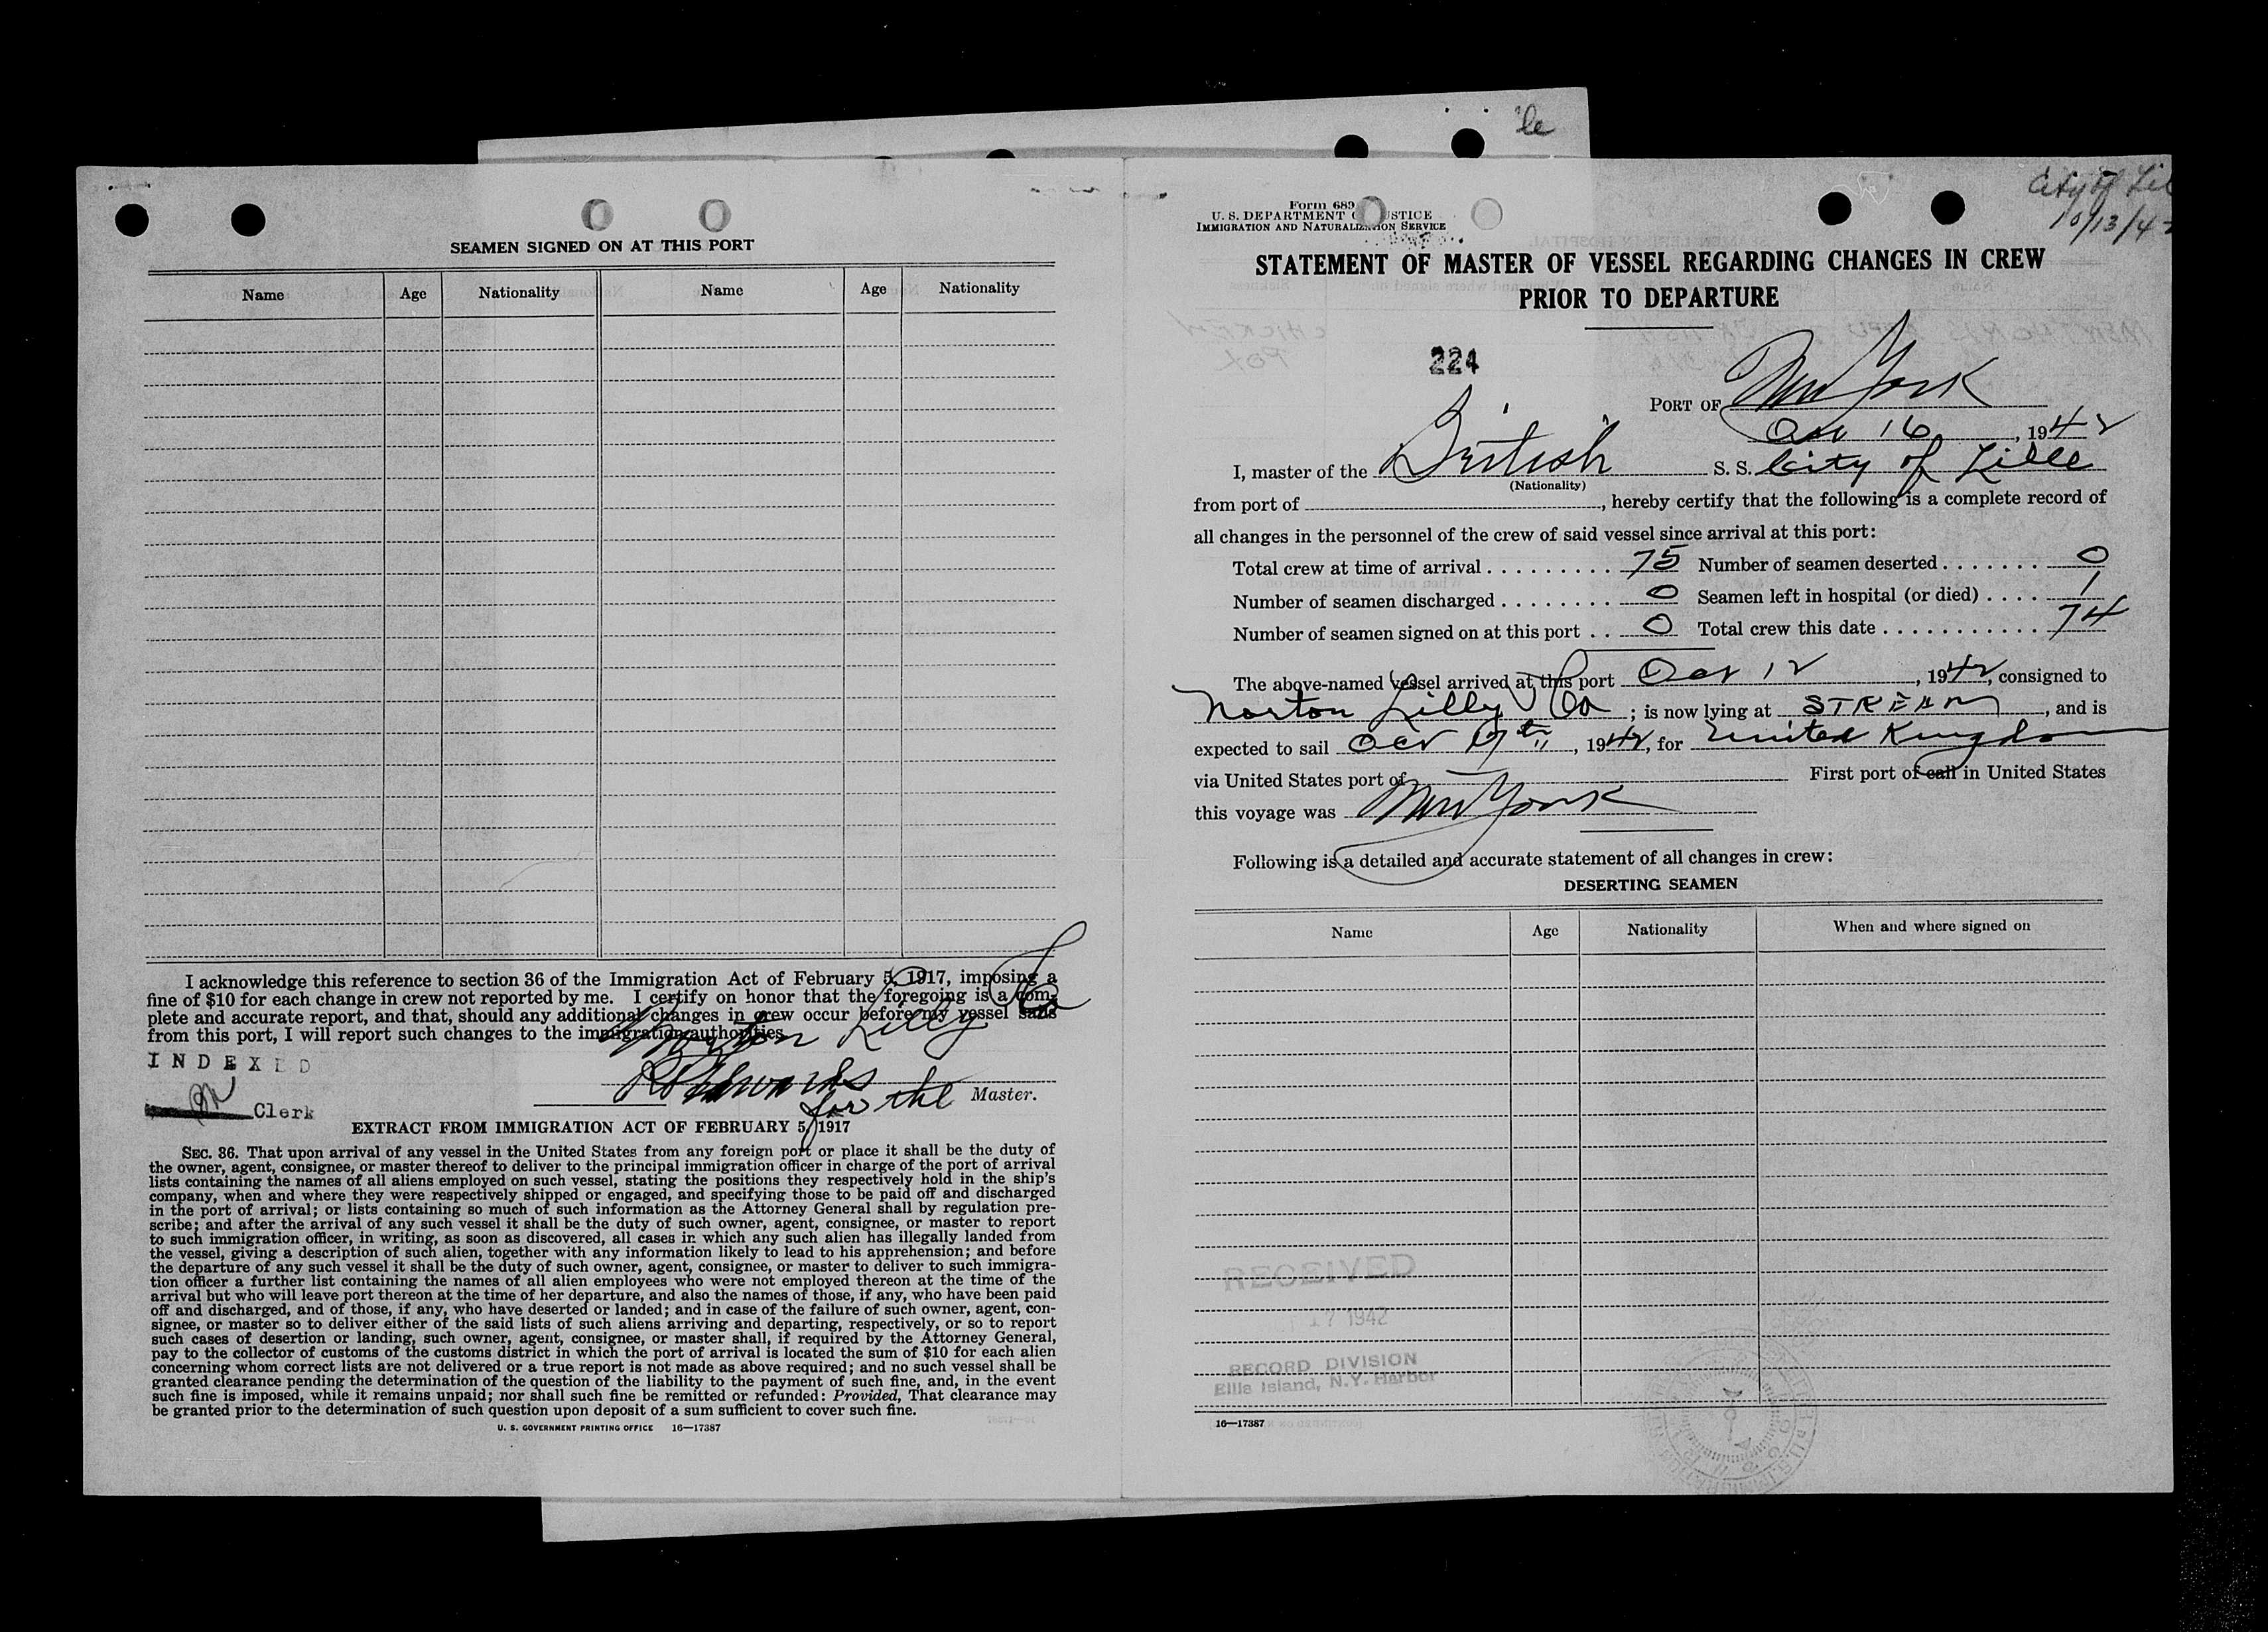 le
SEAMEN SIGNED ON AT THIS PORT
Name Age Nationality Name Age Nationality
I acknowledge this reference to section 36 of the Immigration Act of February 5, 1917, imposing a
fine of $10 for each change in crew not reported by me. I certify on honor that the foregoing is a com-
plete and accurate report, and that, should any additional changes in crew occur before my vessel sails
from this port, I will report such changes to the immigration authorities.
Norton Lilly Co
INDEXED
Edwards
for the Master.
Clerk
EXTRACT FROM IMMIGRATION ACT OF FEBRUARY 5, 1917
SEC. 36. That upon arrival of any vessel in the United States from any foreign port or place it shall be the duty of
the owner, agent, consignee, or master thereof to deliver to the principal immigration officer in charge of the port of arrival
lists containing the names of all aliens employed on such vessel, stating the positions they respectively hold in the ship's
company, when and where they were respectively shipped or engaged, and specifying those to be paid off and discharged
in the port of arrival; or lists containing so much of such information as the Attorney General shall by regulation pre-
scribe; and after the arrival of any such vessel it shall be the duty of such owner, agent, consignee, or master to report
to such immigration officer, in writing, as soon as discovered, all cases in which any such alien has illegally landed from
the vessel, giving a description of such alien, together with any information likely to lead to his apprehension; and before
the departure of any such vessel it shall be the duty of such owner, agent, consignee, or master to deliver to such immigra-
tion officer a further list containing the names of all alien employees who were not employed thereon at the time of the
arrival but who will leave port thereon at the time of her departure, and also the names of those, if any, who have been paid
off and discharged, and of those, if any, who have deserted or landed; and in case of the failure of such owner, agent, con-
signee, or master so to deliver either of the said lists of such aliens arriving and departing, respectively, or so to report
such cases of desertion or landing, such owner, agent, consignee, or master shall, if required by the Attorney General,
pay to the collector of customs of the customs district in which the port of arrival is located the sum of $10 for each alien
concerning whom correct lists are not delivered or a true report is not made as above required; and no such vessel shall be
granted clearance pending the determination of the question of the liability to the payment of such fine, and, in the event
such fine is imposed, while it remains unpaid; nor shall such fine be remitted or refunded: Provided, That clearance may
be granted prior to the determination of such question upon deposit of a sum sufficient to cover such fine.
U. S. GOVERNMENT PRINTING OFFICE 16—17387
City of Lil
10/13/42
Form 689
U. S. DEPARTMENT OF JUSTICE
IMMIGRATION AND NATURALIZATION SERVICE
STATEMENT OF MASTER OF VESSEL REGARDING CHANGES IN CREW
PRIOR TO DEPARTURE
224
PORT OF New York
Oct 16, 1942
I, master of the British S. S. City of Lille
(Nationality)
from port of , hereby certify that the following is a complete record of
all changes in the personnel of the crew of said vessel since arrival at this port:
Total crew at time of arrival 75 Number of seamen deserted 0
Number of seamen discharged 0 Seamen left in hospital (or died) 1
Number of seamen signed on at this port 0 Total crew this date 74
The above-named vessel arrived at this port Oct 12, 1942, consigned to
Norton Lilly Co; is now lying at STREAM, and is
expected to sail Oct 17th, 1942, for United Kingdom
via United States port of First port of call in United States
this voyage was New York
Following is a detailed and accurate statement of all changes in crew:
DESERTING SEAMEN
Name Age Nationality When and where signed on
RECEIVED
17 1942
RECORD DIVISION
Ellis Island, N.Y. Harbor
16—17387